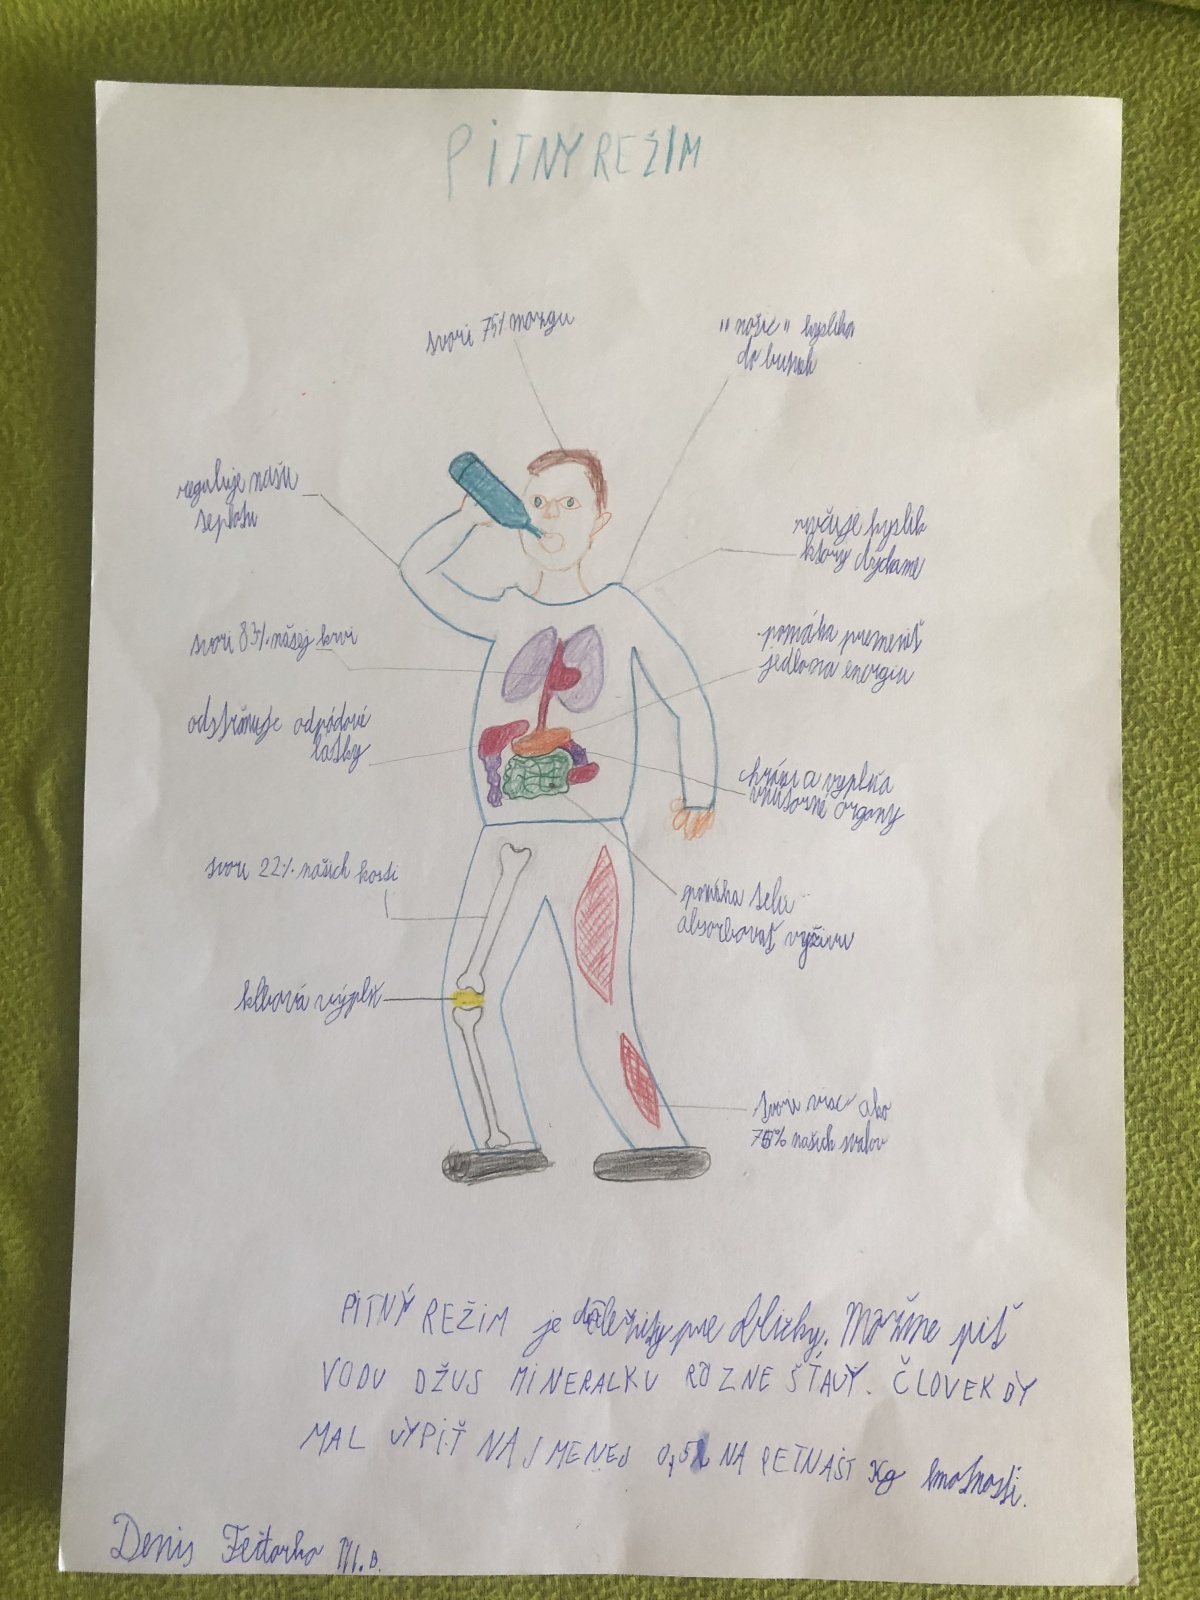 PITNÝ REŽIM
tvorí 75% mozgu
"nosič" kyslíka
do buniek
reguluje našu
teplotu
zvlčuje kyslík
ktorý dýchame
tvorí 83% našej krvi
pomáha premeniť
jedlo na energiu
odstraňuje odpadové
látky
chráni a vyplňa
vnútorné orgány
tvorí 22% našich kostí
pomáha telu
absorbovať výživu
klbová výplň
tvorí viac ako
75% našich svalov
PITNÝ REŽIM je dôležitý pre život. Môžme piť
VODU DŽÚS MINERALKU ROZNE ŠŤAVY. ČLOVEK BY
MAL VYPIŤ NAJMENEJ 0,5L NA PETNÁST Kg hmotnosti.
Denis III.B.